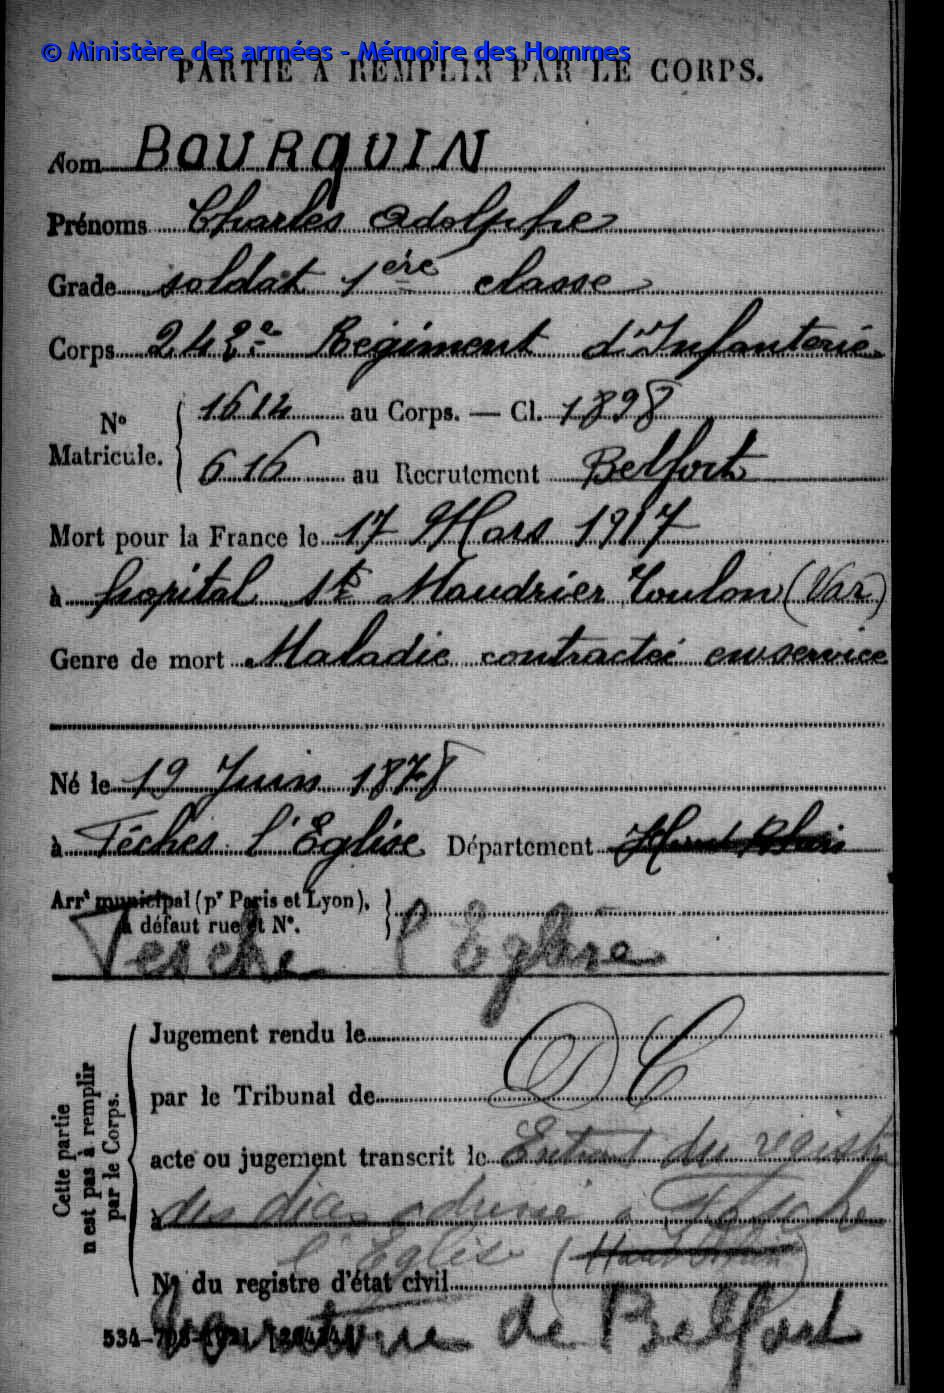 © Ministère des armées - Mémoire des Hommes
PARTIE À REMPLIR PAR LE CORPS.
Nom BOURQUIN
Prénoms Charles Adolphe
Grade soldat 1ère classe
Corps 242e Régiment d'Infanterie
N° Matricule. 1612 au Corps. — Cl. 1898
616 au Recrutement Belfort
Mort pour la France le 17 Mars 1917
à hopital St Mandrier Toulon (Var)
Genre de mort Maladie contractée en service
Né le 19 Juin 1878
à Fêches l'Eglise Département Haut Rhin
Arrt municipal (pr Paris et Lyon),
à défaut rue et N°.
Fesche l'Eglise
Cette partie n'est pas à remplir par le Corps.
Jugement rendu le
par le Tribunal de
DC
acte ou jugement transcrit le Extrait du regist
à des décès adressé à Fesche
l'Eglise (Haut Rhin)
N° du registre d'état civil
Territoire de Belfort
534-708-1921.